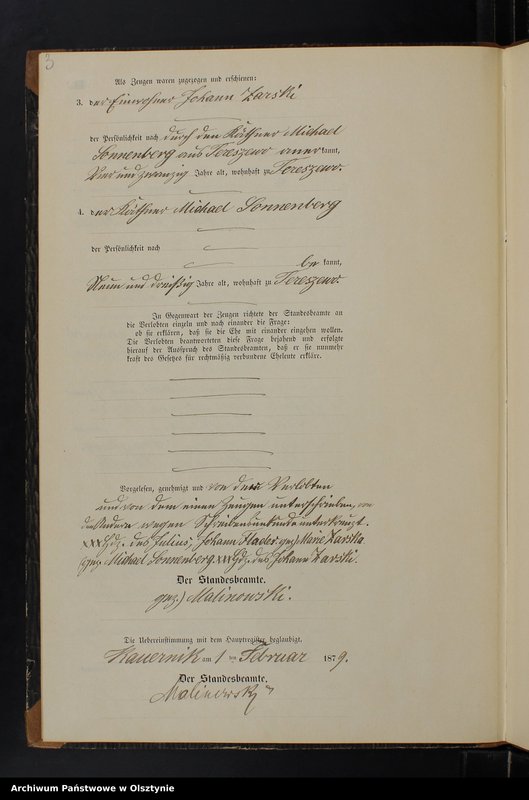 3
Als Zeugen waren zugezogen und erschienen:
3. der Einwohner Johann Zarski
der Persönlichkeit nach durch den Käthner Michael
Sonnenberg aus Tereszewo anerkannt,
Vier und zwanzig Jahre alt, wohnhaft zu Tereszewo.
4. der Käthner Michael Sonnenberg
der Persönlichkeit nach
bekannt,
Neun und dreißig Jahre alt, wohnhaft zu Tereszewo.
In Gegenwart der Zeugen richtete der Standesbeamte an
die Verlobten einzeln und nach einander die Frage:
ob sie erklären, daß sie die Ehe mit einander eingehen wollen.
Die Verlobten beantworteten diese Frage bejahend und erfolgte
hierauf der Ausspruch des Standesbeamten, daß er sie nunmehr
kraft des Gesetzes für rechtmäßig verbundene Eheleute erkläre.
Vorgelesen, genehmigt und von den Verlobten
und von dem einen Zeugen unterschrieben, von
dem Andern wegen Schreibensunkunde unterkreuzt.
XXX Hdz. des Julius, Johann Flader. gez) Marie Zarska
(gez. Michael Sonnenberg. XXX Hdz. des Johann Zarski.
Der Standesbeamte.
gez.) Malinowski.
Die Uebereinstimmung mit dem Hauptregister beglaubigt.
Kauernik am 1 ten Februar 1879.
Der Standesbeamte.
Malinowski
Archiwum Państwowe w Olsztynie